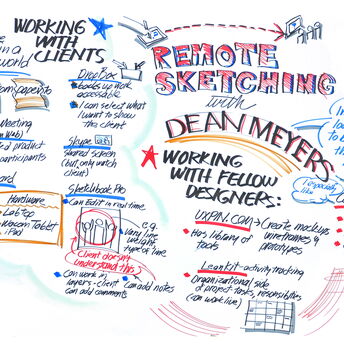 WORKING
WITH
CLIENTS
in a
world
Meeting
Web)
ed product
participants
Hardware
Laptop
Wacom Tablet
iPad
DropBox
Goods up work
accessible
I can select what
I want to show
the client
Skype
Shared screen
(but only watch
client)
Sketchbook Pro
Can Edit in real time.
e.g.
Vary line
weight
Client doesn't
understand this
Can work in
layers - client
can add comments
can add notes
REMOTE
SKETCHING
with
DEAN MEYERS
WORKING
WITH FELLOW
DESIGNERS:
UXPIN.COM → Create mockups
wireframes &
prototypes
Has library of
tools
LeanKit - activity tracking
Organizational side
of project tasks, responsibilities
(can work live)
Especially
like